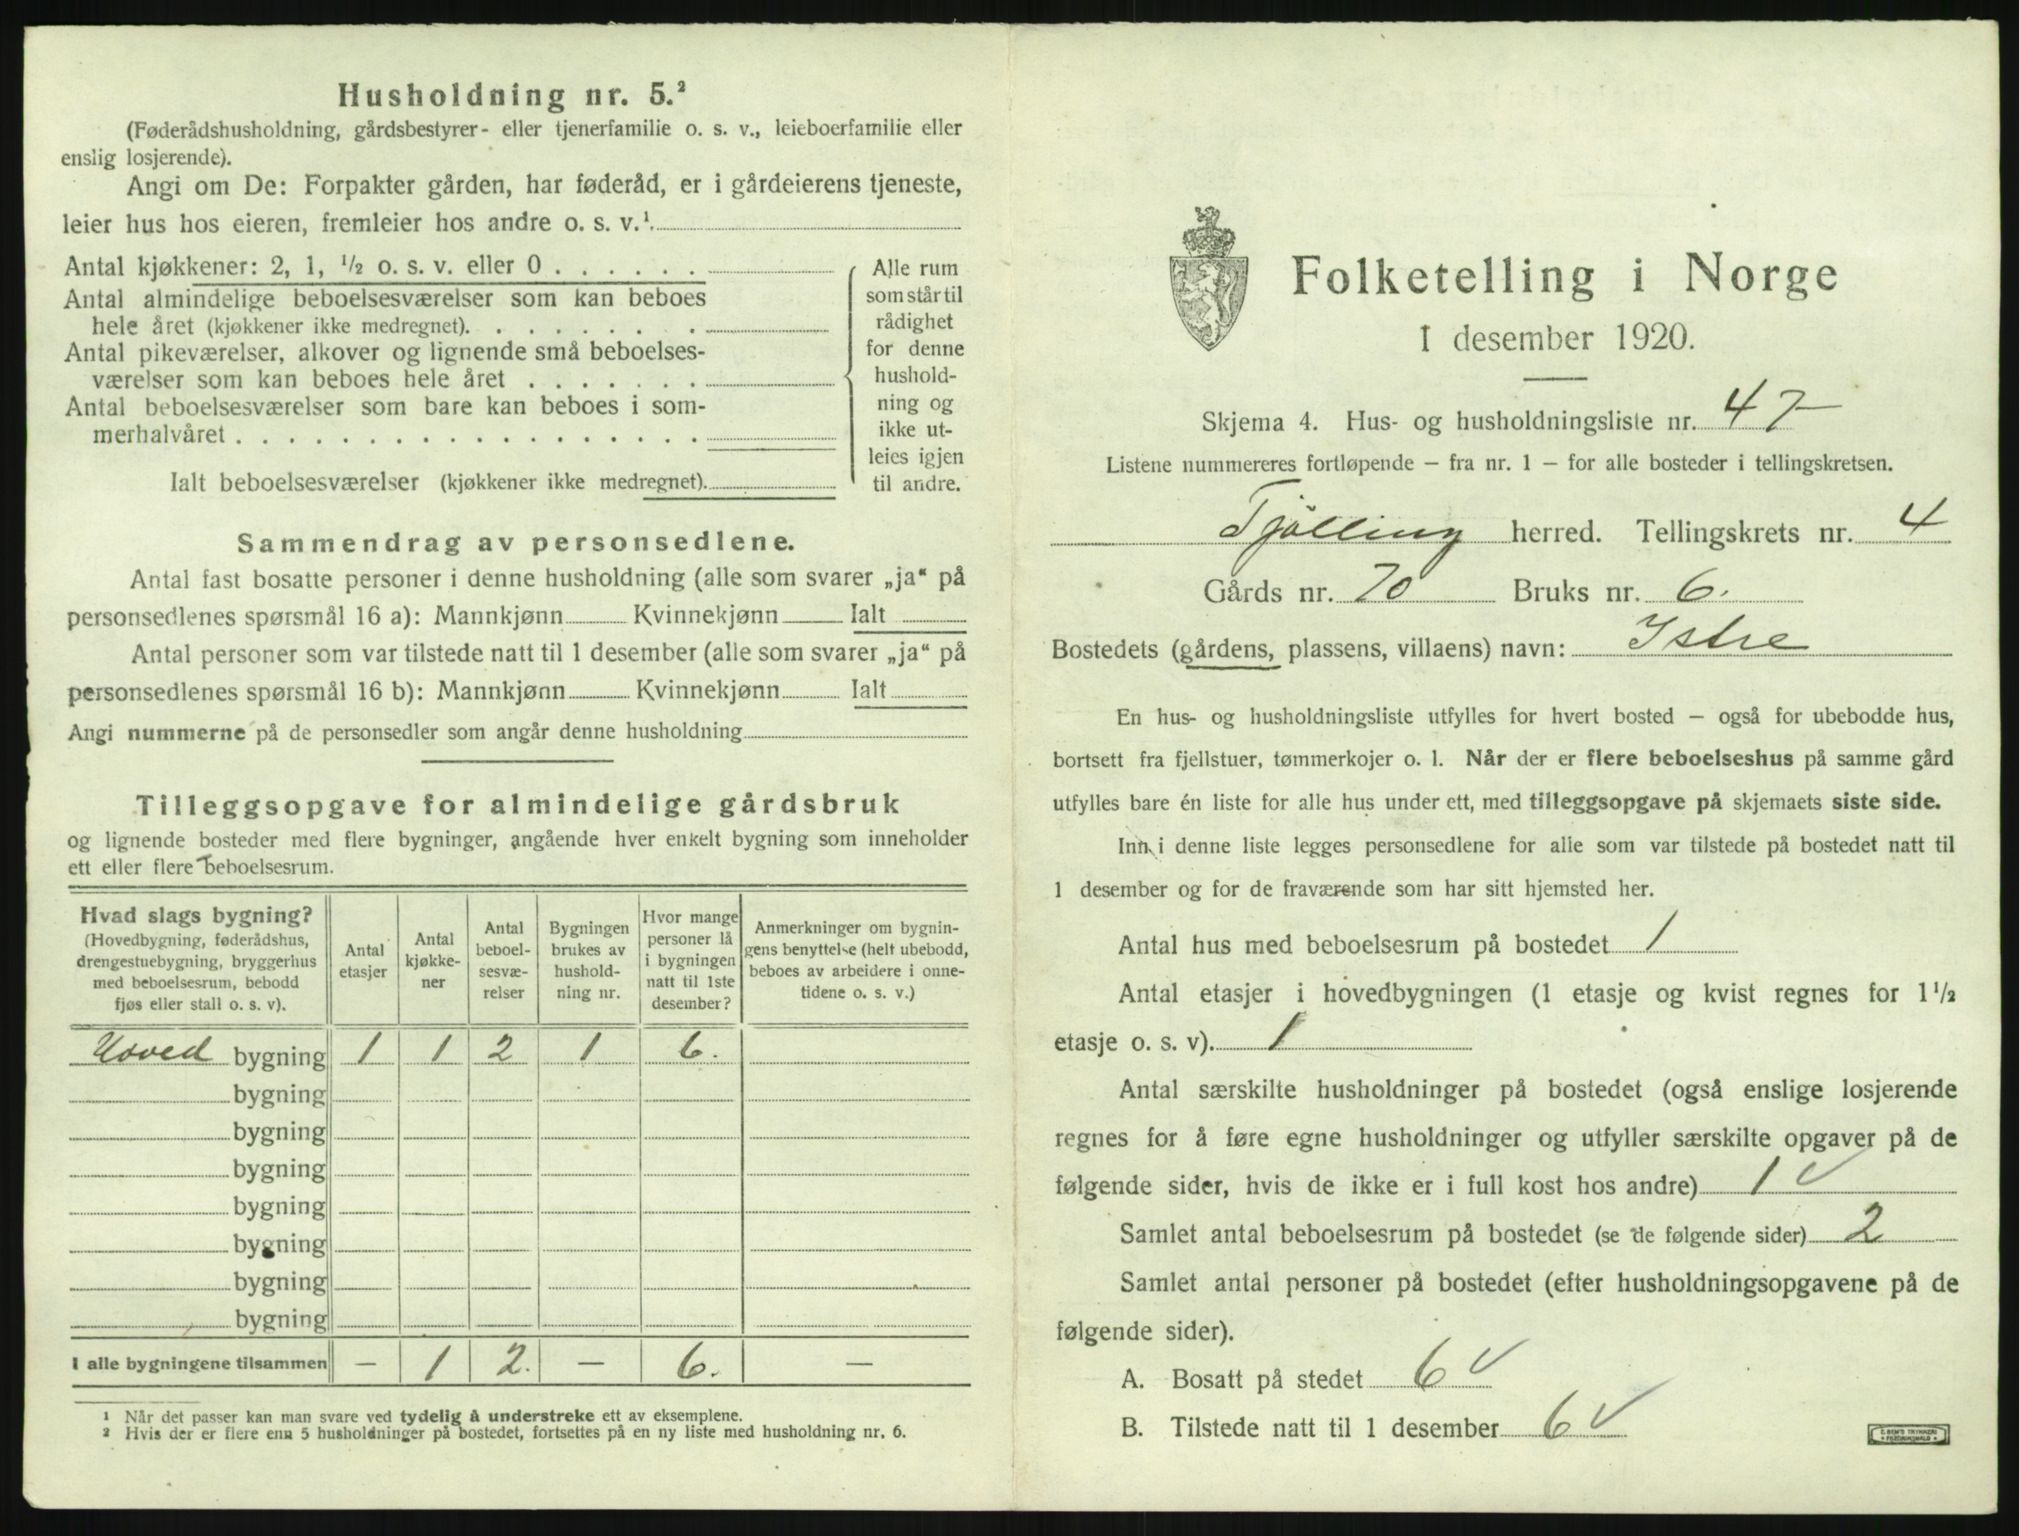 Husholdning nr. 5.²
(Føderådshusholdning, gårdsbestyrer- eller tjenerfamilie o. s. v., leieboerfamilie eller
enslig losjerende).
Angi om De: Forpakter gården, har føderåd, er i gårdeierens tjeneste,
leier hus hos eieren, fremleier hos andre o. s. v.¹
Antal kjøkkener: 2, 1, ½ o. s. v. eller 0 . . . . . .
Antal almindelige beboelsesværelser som kan beboes
hele året (kjøkkener ikke medregnet). . . . . . . .
Antal pikeværelser, alkover og lignende små beboelses-
værelser som kan beboes hele året . . . . . . .
Antal beboelsesværelser som bare kan beboes i som-
merhalvåret . . . . . . . . . . . . . . . . . .
Ialt beboelsesværelser (kjøkkener ikke medregnet).
Alle rum
som står til
rådighet
for denne
hushold-
ning og
ikke ut-
leies igjen
til andre.
Sammendrag av personsedlene.
Antal fast bosatte personer i denne husholdning (alle som svarer „ja“ på
personsedlenes spørsmål 16 a): Mannkjønn Kvinnekjønn Ialt
Antal personer som var tilstede natt til 1 desember (alle som svarer „ja“ på
personsedlenes spørsmål 16 b): Mannkjønn Kvinnekjønn Ialt
Angi nummerne på de personsedler som angår denne husholdning
Tilleggsopgave for almindelige gårdsbruk
og lignende bosteder med flere bygninger, angående hver enkelt bygning som inneholder
ett eller flere beboelsesrum.
Hvad slags bygning?
(Hovedbygning, føderådshus,
drengestuebygning, bryggerhus
med beboelsesrum, bebodd
fjøs eller stall o. s. v).
Antal
etasjer
Antal
kjøkke-
ner
Antal
beboel-
sesvæ-
relser
Bygningen
brukes av
hushold-
ning nr.
Hvor mange
personer lå
i bygningen
natt til 1ste
desember?
Anmerkninger om bygnin-
gens benyttelse (helt ubebodd,
beboes av arbeidere i onne-
tidene o. s. v.)
Hoved bygning 1 1 2 1 6.
bygning
bygning
bygning
bygning
bygning
bygning
bygning
I alle bygningene tilsammen — 1 2. — 6. —
¹ Når det passer kan man svare ved tydelig å understreke ett av eksemplene.
² Hvis der er flere enn 5 husholdninger på bostedet, fortsettes på en ny liste med husholdning nr. 6.
Folketelling i Norge
1 desember 1920.
Skjema 4. Hus- og husholdningsliste nr. 47
Listene nummereres fortløpende – fra nr. 1 – for alle bosteder i tellingskretsen.
Tjølling herred. Tellingskrets nr. 4
Gårds nr. 70 Bruks nr. 6.
Bostedets (gårdens, plassens, villaens) navn: Istre
En hus- og husholdningsliste utfylles for hvert bosted – også for ubebodde hus,
bortsett fra fjellstuer, tømmerkojer o. l. Når der er flere beboelseshus på samme gård
utfylles bare én liste for alle hus under ett, med tilleggsopgave på skjemaets siste side.
Inn i denne liste legges personsedlene for alle som var tilstede på bostedet natt til
1 desember og for de fraværende som har sitt hjemsted her.
Antal hus med beboelsesrum på bostedet 1
Antal etasjer i hovedbygningen (1 etasje og kvist regnes for 1½
etasje o. s. v). 1
Antal særskilte husholdninger på bostedet (også enslige losjerende
regnes for å føre egne husholdninger og utfyller særskilte opgaver på de
følgende sider, hvis de ikke er i full kost hos andre) 1 ✓
Samlet antal beboelsesrum på bostedet (se de følgende sider) 2
Samlet antal personer på bostedet (efter husholdningsopgavene på de
følgende sider).
A. Bosatt på stedet 6 ✓
B. Tilstede natt til 1 desember 6 ✓